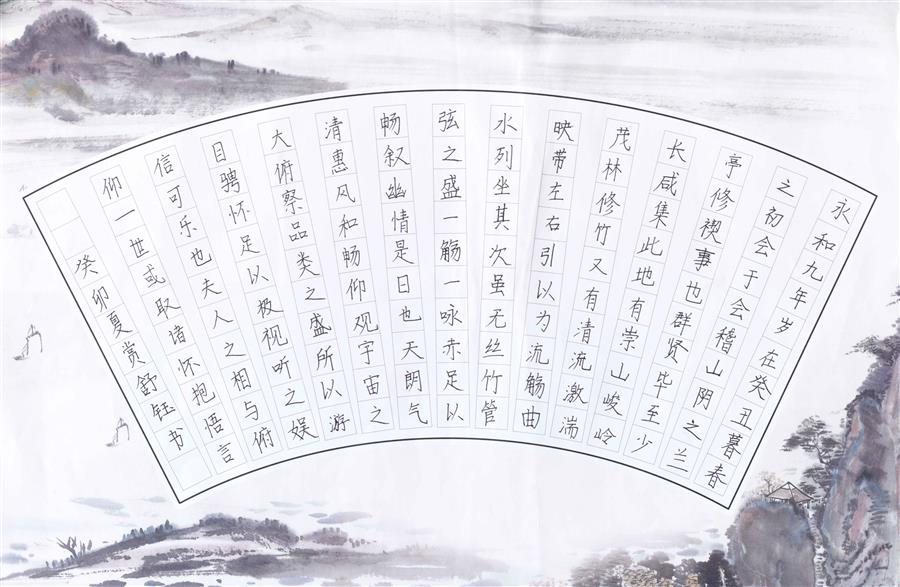 永和九年岁在癸丑暮春
之初会于会稽山阴之兰
亭修禊事也群贤毕至少
长咸集此地有崇山峻岭
茂林修竹又有清流激湍
映带左右引以为流觞曲
水列坐其次虽无丝竹管
弦之盛一觞一咏亦足以
畅叙幽情是日也天朗气
清惠风和畅仰观宇宙之
大俯察品类之盛所以游
目骋怀足以极视听之娱
信可乐也夫人之相与俯
仰一世或取诸怀抱悟言
癸卯夏赏舒钰书